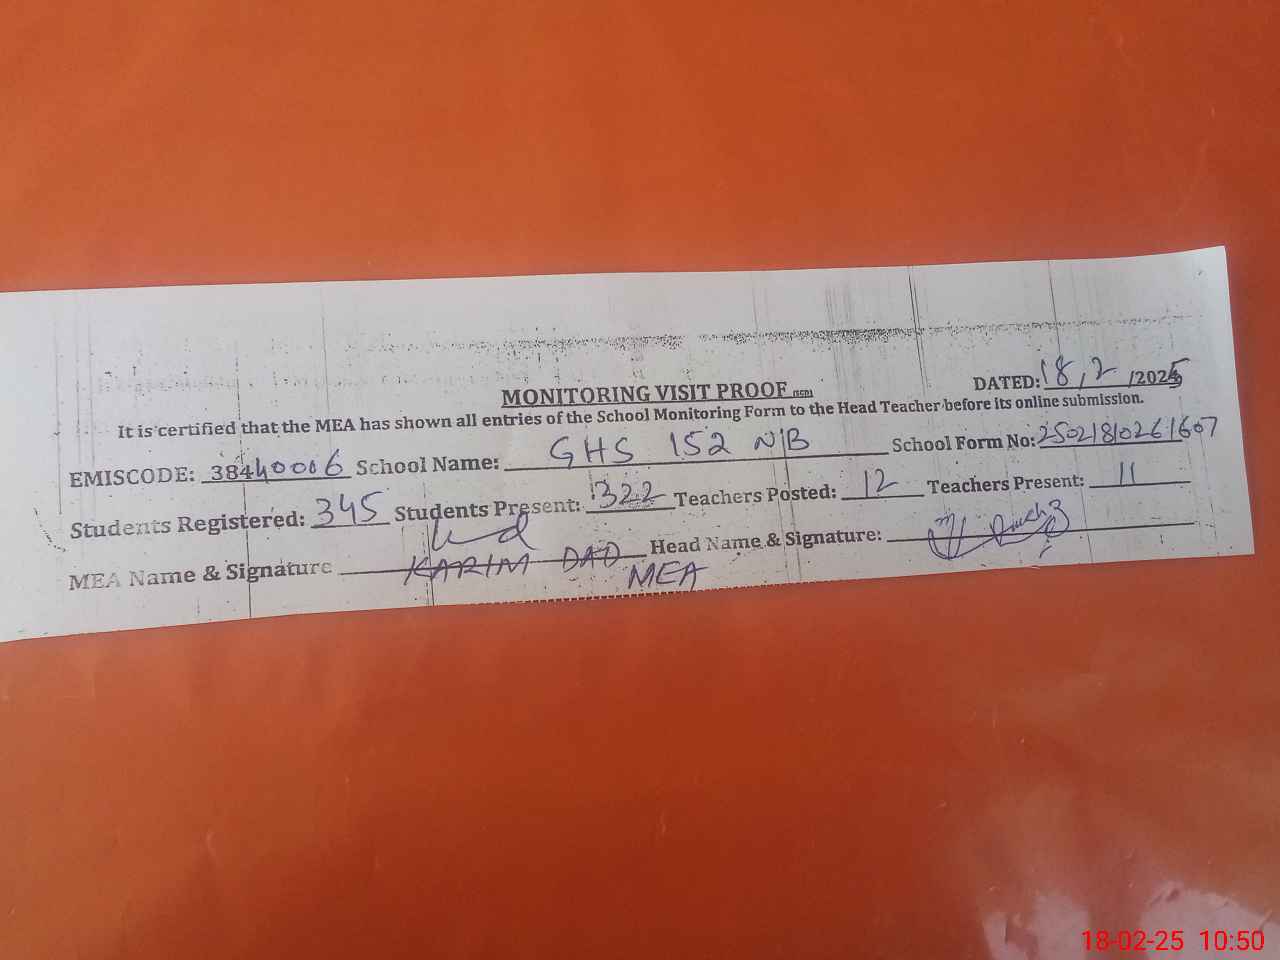 MONITORING VISIT PROOF
DATED: 18,2 /2025
It is certified that the MEA has shown all entries of the School Monitoring Form to the Head Teacher before its online submission.
EMISCODE: 38440006 School Name: GHS 152 N/B School Form No: 25021810261607
Students Registered: 345 Students Present: 322 Teachers Posted: 12 Teachers Present: 11
MEA Name & Signature KARIM DAD Head Name & Signature:
MEA
18-02-25 10:50